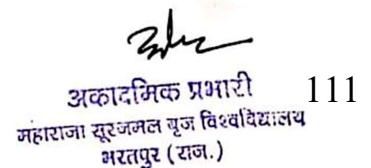 अकादमिक प्रभारी 111
महाराजा सूरजमल बृज विश्वविद्यालय
भरतपुर (राज.)